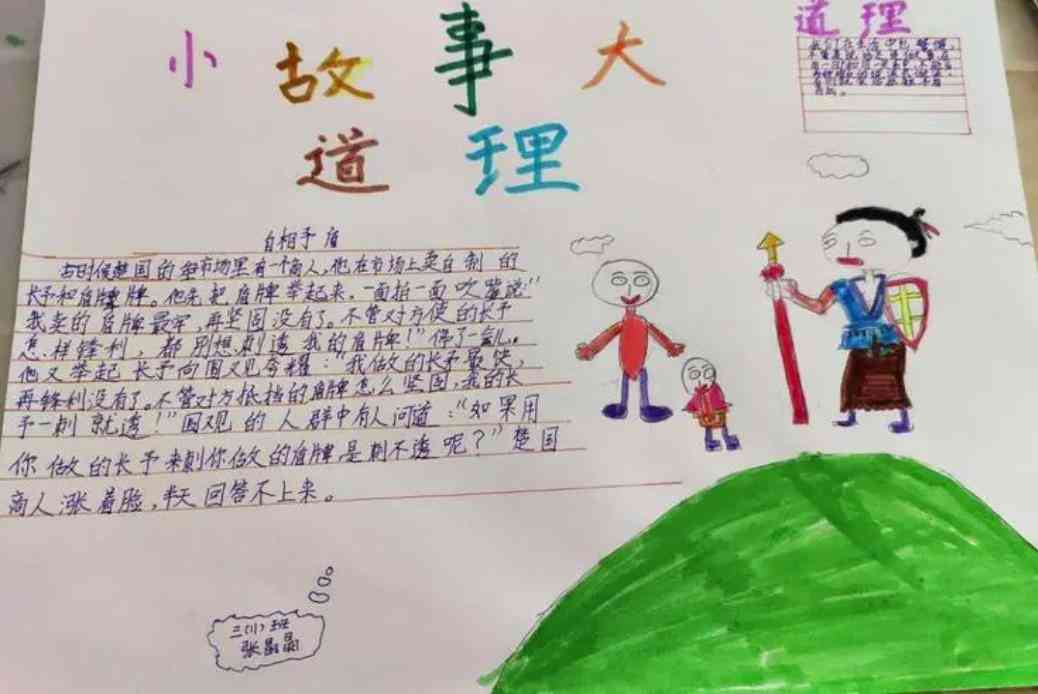 小故事大
道理
道理
自相矛盾
古时候楚国的和市场里有一个商人,他在市场上卖自制的
长矛和盾牌牌。他先把盾牌举起来,一面拍一面吹嘘说:"
我卖的盾牌最牢,再坚固没有了。不管对方使的长矛
怎样锋利,都别想刺透我的盾牌!"停了一会儿,
他又举起长矛向围又见夸耀:"我做的长矛最快,
再锋利没有了。不管对方抵挡的盾牌怎么坚固,我的长
矛一刺就透!"围观的人群中有人问道:"如果用
你做的长矛来刺你做的盾牌,是刺不透呢?"楚国
商人涨着脸,半天回答不上来。
三(1)班
张晶晶